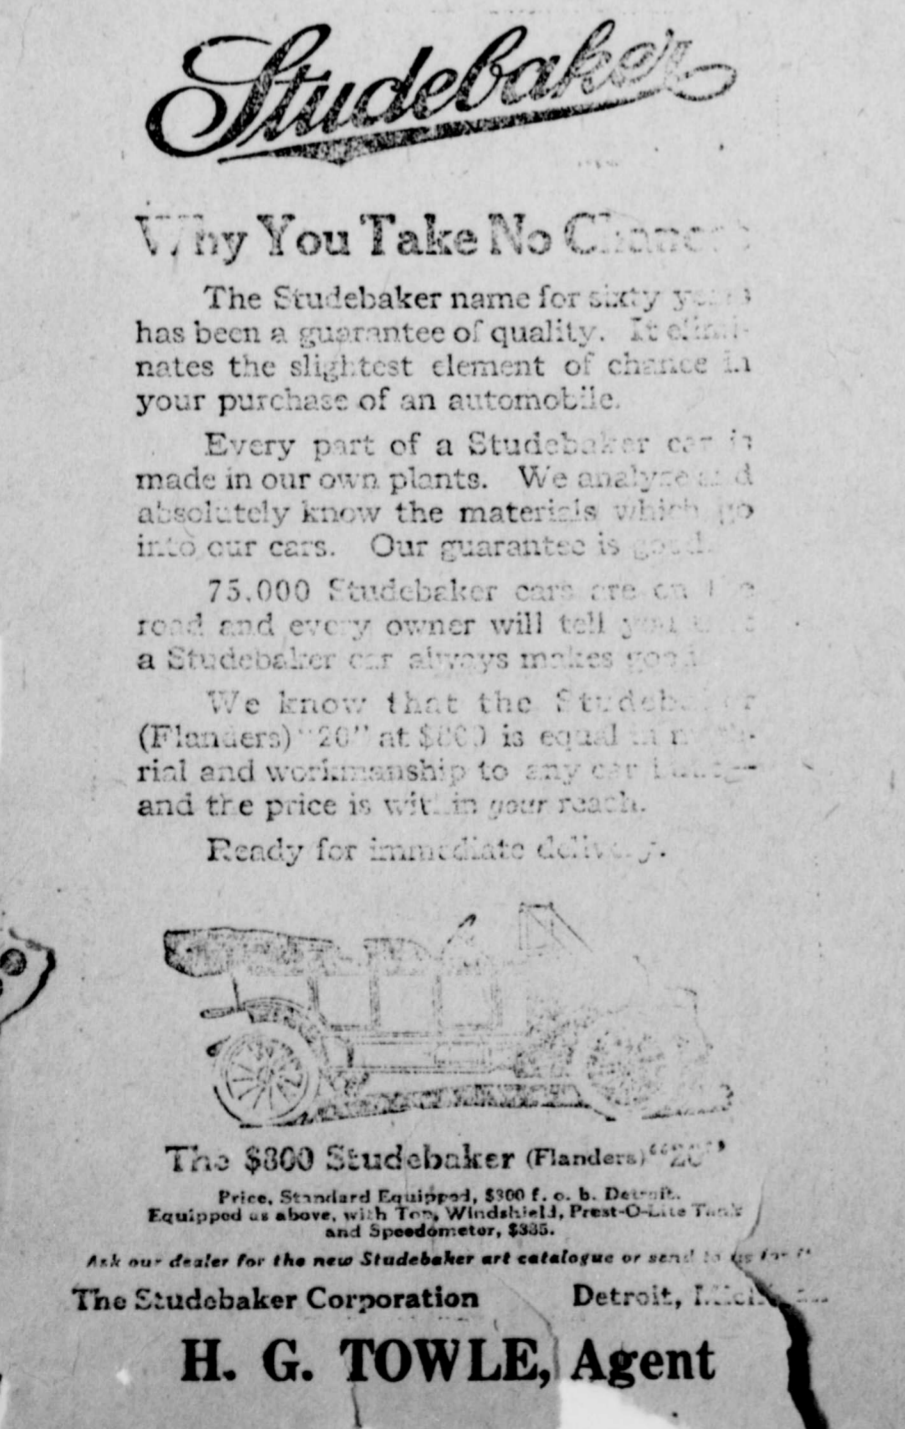 Studebaker
Why You Take No Chances
The Studebaker name for sixty years
has been a guarantee of quality. It elimi-
nates the slightest element of chance in
your purchase of an automobile.
Every part of a Studebaker car is
made in our own plants. We analyze and
absolutely know the materials which go
into our cars. Our guarantee is good.
75,000 Studebaker cars are on the
road and every owner will tell you
a Studebaker car always makes good.
We know that the Studebaker
(Flanders) "20" at $800 is equal in
rial and workmanship to any car
and the price is within your reach.
Ready for immediate delivery.
The $800 Studebaker (Flanders) "20"
Price, Standard Equipped, $800 f. o. b. Detroit.
Equipped as above, with Top, Windshield, Prest-O-Lite Tank
and Speedometer,
Ask our dealer for the new Studebaker art catalogue or send to us for it
The Studebaker Corporation Detroit, Michigan
H. G. TOWLE, Agent